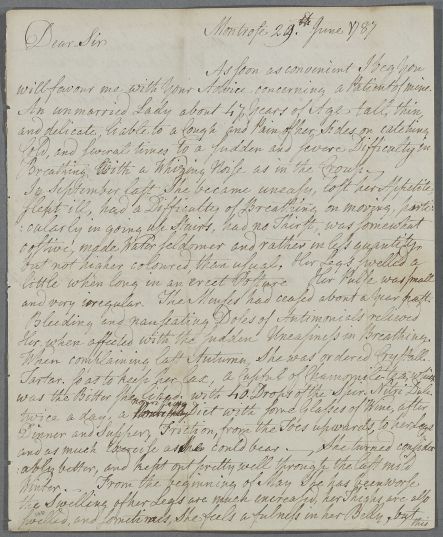 Montrose 29.th June 1787
Dear Sir
As soon as convenient I beg you
will favour me with Your Advice concerning a Patient of mine.
An unmarried Lady about 47 Years of Age tall, thin
and delicate, liable to a Cough and Pain of her Sides on catching
Cold, and several times to a sudden and severe Difficulty in
Breathing With a Whizing Noise as in the Croup.
In September last She became uneasy, lost her Appetite,
slept ill, had a Difficulty of Breathing on moving, parti
:cularly in going up Stairs, had no Thirst, was somewhat
costive, made Water seldomer and rather in less quantity,
but not higher coloured than usual. Her Legs swelled a
little when long in an erect Posture Her Pulse was small
and very irregular. The Menses had ceased about a Year past.
Bleeding and nauseating Doses of Antimonials relieved
Her when affected with the sudden Uneasiness in Breathing.
When complaining last Autumn, She was ordered Crystall.
Tartar. so as to keep her Lax, a Cupful of Chamomile Tea,
was the Better with 40 Drops of the Spir. Nitri Dulc.
twice a day, a nourishing Diet with some Glasses of Wine, after
Dinner and Supper, Friction, from the Toes upwards, to her Legs
and as much Exercise as She could bear, She turned consider
:ably better, and kept out pretty well through the last mild
Winter. From the beginning of May She has been worse
the Swelling of her Legs are much increased, her Thighs are also
swelled, and sometimes, She feels a fulness in her Belly, but
this